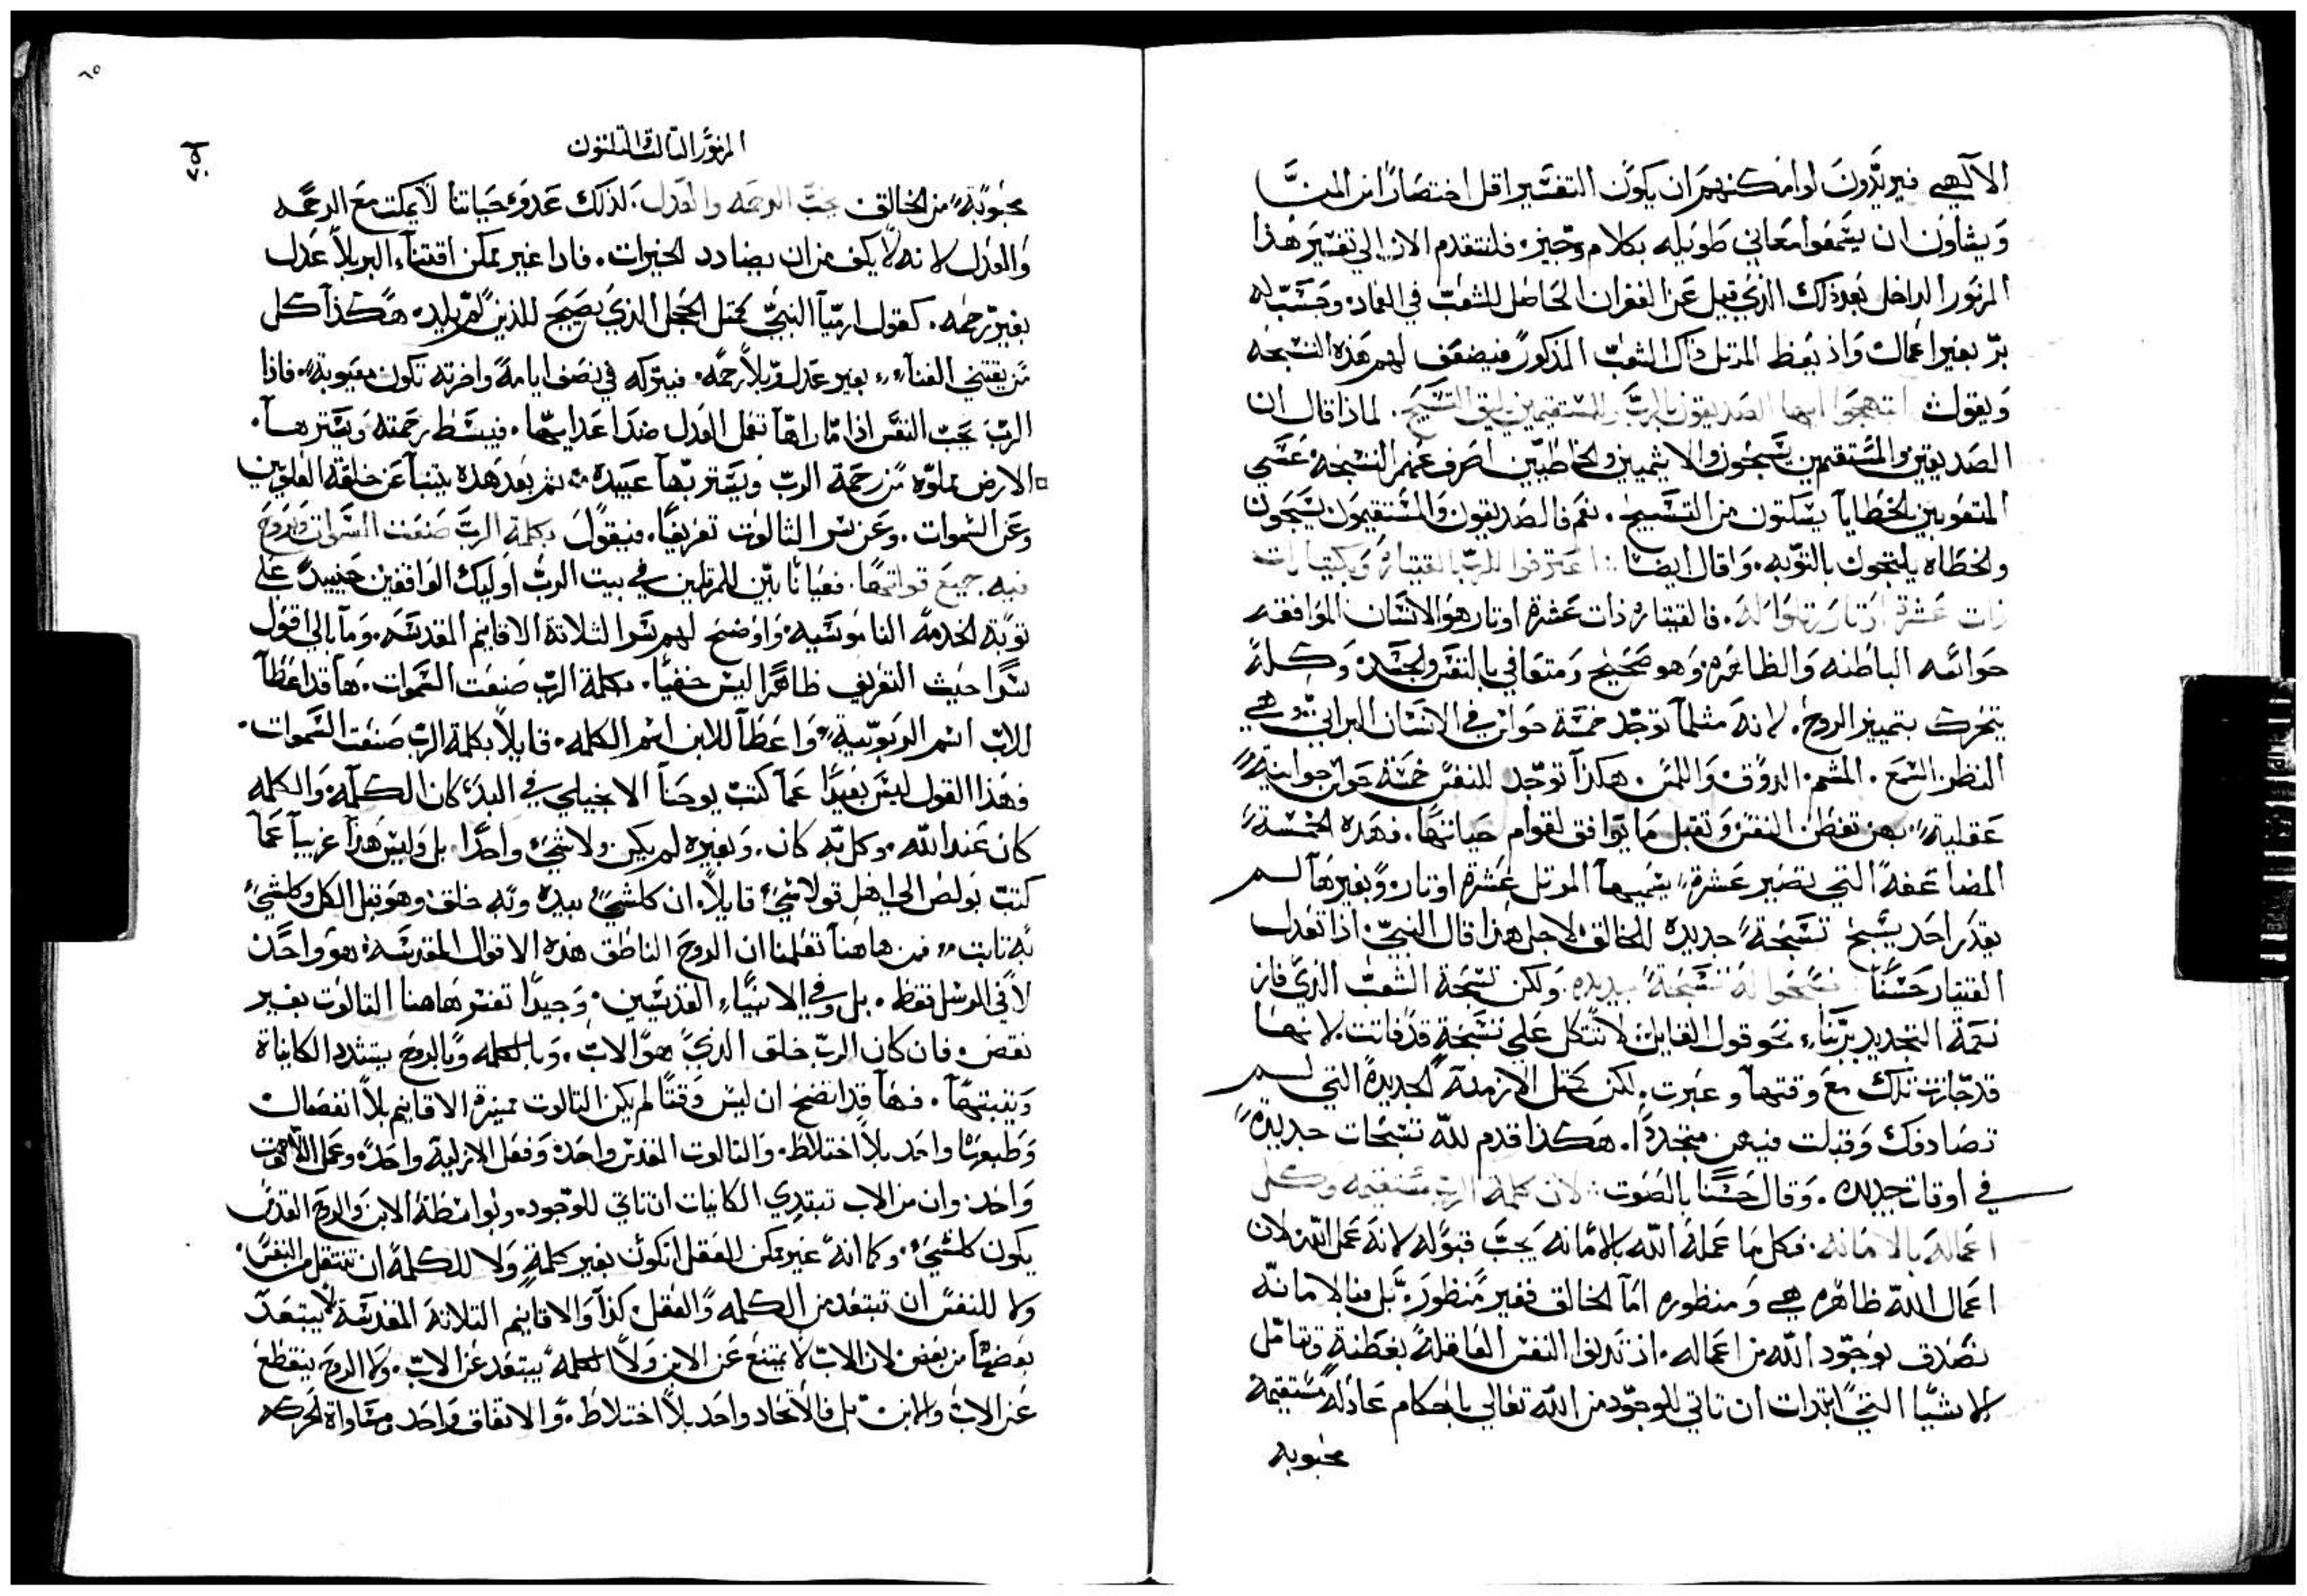 الآلهي فيريدون لو امكنهم ان يكون التفسير اقل اختصارًا من المتن
ويشاون ان يسمعوا معاني طويله بكلام وجيز. فلنتقدم الان الي تفسير هذا
المزمور الداخل بعد ذلك الذي قيل عن الغفران الحاصل للشعب في العماد وحسب له
برّ بغير اعمال واذ يعظ المرتل ذاك الشعب المذكور فيضعف لهم هذه التسبحه
ويقول ابتهجوا ايها الصديقون بالربّ للمستقيمين يليق التسبيح. لماذا قال ان
الصديقين والمستقيمين يسبحون والاثيمين والخاطيين اصرف عنهم التسبحه عسي
المتعوبين بالخطايا يسكتون من التسبيح. نعم فالصديقون والمستقيمون يسبحون
والخطاه يلتجون بالتوبه. وقال ايضا: اعترفوا للربّ بالقيتاره وبكيتارات
ذات عشرة اوتار رتلوا له. فالقيتاره ذات عشرة اوتار هو الانسان الموافقه
حواسه الباطنه والظاهره وهو صحيح ومتعافي بالنفس والجسد وكله
يتحرك بتمييز الروح. لانه مثلما توجد خمسة حواس في الانسان البراني وهي
النظر. السمع. المشم. الدوق واللمس. هكذا توجد للنفس خمسة حواس جوانية
عقلية بهن تفطن النفس وتقبل ما يوافق لقوام حياتها. فهذه الخمسة
المضاعفة التي تصير عشرة يسميها المرتل عشرة اوتار وبغيرها لم
يقدر احد يسبح تسبحة جديده للخالق لاجل هذا قال النبي. اذا تعدل
القيتار حسنًا سبحوا له تسبحة جديده ولكن تسبحة الشعب الذي فاز
نعمة التجديد بربنا، نحو قول القايل: لا تتكل علي تسبحة قد فاتت لانها
قد جازت تلك مع وقتها وعبرت. لكن كمثل الازمنة الجديدة التي لم
تصادفك وقبلت فيهن متجددًا. هكذا قدم لله تسبحات جديدة
في اوقات جديده. وقال حسنًا بالصوت: لان كلمة الرب مستقيمه وكل
اعماله بالامانه. فكل ما عمله الله بالامانه يجب قبوله لانه عمل الله لان
اعمال الله ظاهره هي ومنظوره اما الخالق فغير منظور. بل منا بالامانه
نصدق بوجود الله من اعماله. اذ تدنوا النفس العاقلة بفطنة وتتامل
الاشيا التي ابتدات ان تاتي للوجود من الله تعالي باحكام عادلة مستقيمة
محبوبه
المزمور التالت والتلتون
محبوبة من الخالق يحبّ الرحمه والعدل. لذلك عدو حياتنا لا يمكث مع الرحمه
والعدل لانه لا يكف من ان يضادد الخيرات. فاذا غير ممكن اقتناء البر بلا عدل
بغير رحمه. كقول ارميا النبي كمثل الحجل الذي يصيح للذين لم يلد. هكذا كل
من يقتني الغناء بغير عدل وبلا رحمه. فيتركه في نصف ايامه واخرته تكون معيوبة. فاذا
الربّ يحب النفس اذا ما راها تعمل العدل ضد اعدايها. فيبسط رحمته ويسترها.
الارض مملوّه من رحمة الرب ويستر بها عبيده ثم بعد هذه يتنبا عن خلقة العلويين
وعن السموات. وعن سر الثالوت تعريفًا. فيقول بكلمة الربّ صنعت السموات وبروح
فيه جميع قواتها. فعيانًا بيّن للمرتلين في بيت الربّ اوليك الواقفين حينيدٍ علي
نوبة الخدمة الناموسيه. واوضح لهم سر الثلاثة الاقانيم المقدسه. وما بالي اقول
سرًا حيث التعريف ظاهرًا ليس خفيًا. بكلمة الرب صنعت السموات. ها قد اعطا
للاب اسم الربوبية واعطا للابن اسم الكلمه. قايلاً بكلمة الرب صنعت السموات.
فهذا القول ليس بعيدًا عما كتب يوحنا الانجيلي في البدء كان الكلمه والكلمه
كان عند الله. وكل به كان. وبغيره لم يكن ولا شيء واحدًا. بل وليس هذا غريبًا عما
كتب بولص الي اهل قولاسي قايلاً. ان كلشي بيده وبه خلق وهو قبل الكل وكلشي
به تابت. فمن هاهنا تعلمنا ان الروح الناطق هذه الاقوال المقدسة: هو واحدًا
لا في الرسل فقط. بل وفي الانبياء القديسين. وجيدًا تفسر هاهنا التالوت بغير
نقص. فان كان الربّ خلق الذي هو الاب. وبالكلمه وبالروح يتشدد الكاينات
ويثبتها. فها قد اتضح ان ليس وقتًا لم يكن التالوت مميزة الاقانيم بلا انفصال
وطبيعتا واحد بلا اختلاط. والتالوت القدس واحدة وفعل الازلية واحدة وعمل اللاهوت
واحد. وان من الاب تبتدي الكاينات ان تاتي للوجود. وبواسطة الابن والروح القدس
يكون كلشيء. وكما انه غير ممكن للعقل ان يكون بغير كلمة ولا للكلمة ان تنتقل من النفس.
ولا للنفس ان تبتعد من الكلمه والعقل. كذا والاقانيم التلاتة المقدسة لا يبتعد
بعضها من بعض. لان الاب لا يمتنع عن الابن ولا الكلمه يبتعد عن الاب. ولا الروح ينقطع
عن الاب والابن بل فالاتحاد واحد بلا اختلاط. والاتفاق واحد ومساواة الحركه